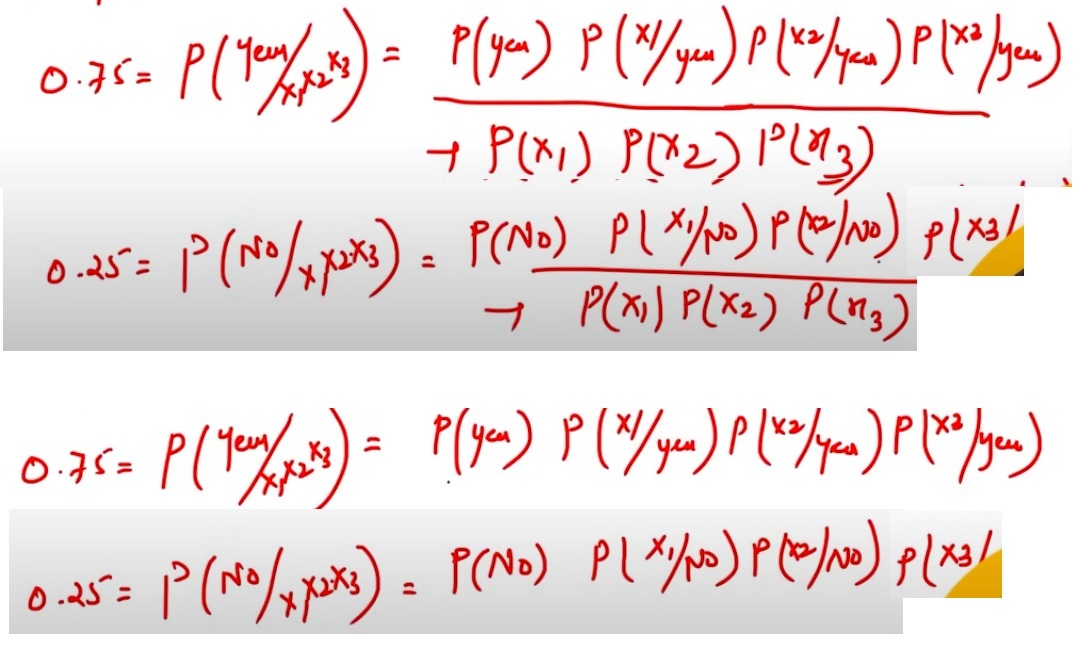 0.75 = P(Yes/x1x2x3) = P(yes) P(x1/yes) P(x2/yes) P(x3/yes)
→ P(x1) P(x2) P(x3)
0.25 = P(No/x1x2x3) = P(No) P(x1/No) P(x2/No) P(x3/
→ P(x1) P(x2) P(x3)
0.75 = P(Yes/x1x2x3) = P(yes) P(x1/yes) P(x2/yes) P(x3/yes)
0.25 = P(No/x1x2x3) = P(No) P(x1/No) P(x2/No) P(x3/